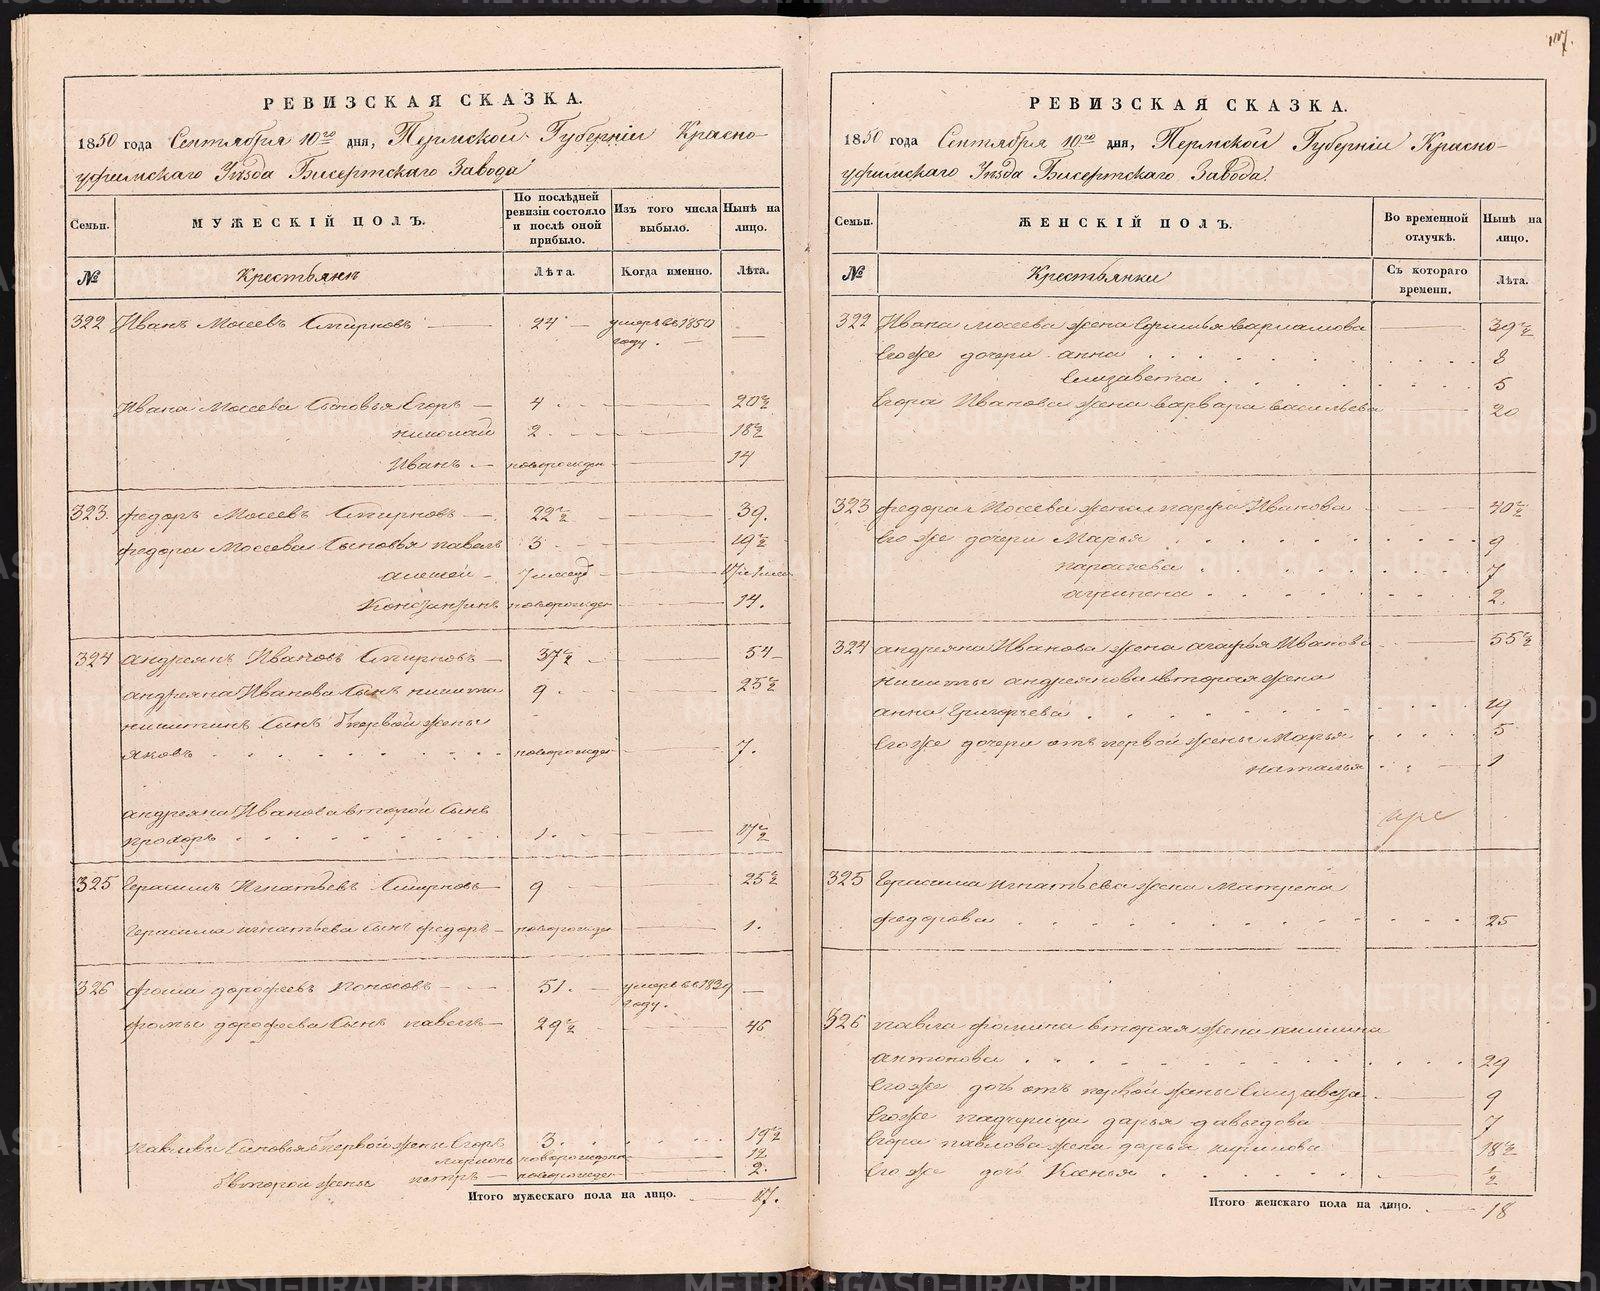 РЕВИЗСКАЯ СКАЗКА.
1850 года Сентября 10го дня, Пермской Губерніи Красно-
уфимскаго Уѣзда Бисертскаго Завода
Семьи.
МУЖЕСКІЙ ПОЛЪ.
По послѣдней ревизіи состояло и послѣ оной прибыло.
Изъ того числа выбыло.
Нынѣ на лицо.
№
Крестьянъ
Лѣта.
Когда именно.
Лѣта.
322 Иванъ Мосеевъ Смирновъ 24 умеръ въ 1850 году.
Ивана Мосеева Сыновья Егоръ 4 20½
николай 2 18½
Иванъ новорожден 14
323. федоръ Мосеевъ Смирновъ 22½ 39.
федора Мосеева Сыновья павелъ 3 19½
алексей 7 месяц
Констянтинъ новорожден 14.
324 андреянъ Ивановъ Смирновъ 37½ 54
андреяна Иванова Сынъ никита 9 25½
никитинъ Сынъ отъ первой жены
яковъ новорожден 7.
андреяна Иванова второй Сынъ
прохоръ 1. 17½
325 Герасимъ Игнатьевъ Смирновъ 9 25½
Герасима игнатьева Сынъ федоръ новорожден 1.
326 фома дорофеевъ 51. умеръ въ 1839 году.
фомы дорофеева Сынъ павелъ 29½ 46
павловы Сыновья отъ первой жены Егоръ 3. 19½
ларионъ новорожден 12
отъ второй жены петръ новорожден 2.
Итого мужескаго пола на лицо. 17.
117.
РЕВИЗСКАЯ СКАЗКА.
1850 года Сентября 10го дня, Пермской Губерніи Красно-
уфимскаго Уѣзда Бисертскаго Завода.
Семьи.
ЖЕНСКІЙ ПОЛЪ.
Во временной отлучкѣ.
Нынѣ на лицо.
№
Крестьянки
Съ котораго времени.
Лѣта.
322 Ивана мосеева жена Ефимья варламова 39½
Его же дочери анна 8
Елизавета 5
Егора Иванова жена варвара васильева 20
323 федора Мосеева жена марфа Иванова 40½
Его же дочери Марья 9
парасковея 7
агрипена 2.
324 андреяна Иванова жена агафья Иванова 55½
никиты андреянова вторая жена
анна Григорьева 19
Его же дочери отъ первой жены Марья 5
наталья 1
325 Герасима игнатьева жена Матрена
федорова 25
326 павла фомина вторая жена акилина
антонова 29
Его же дочь отъ первой жены Елизавета 9
Его же падчерица дарья давыдова 7
Егора павлова жена дарья кирилова 18½
Его же дочь Ксенья ½
Итого женскаго пола на лицо. 18
METRIKI.GASO-URAL.RU